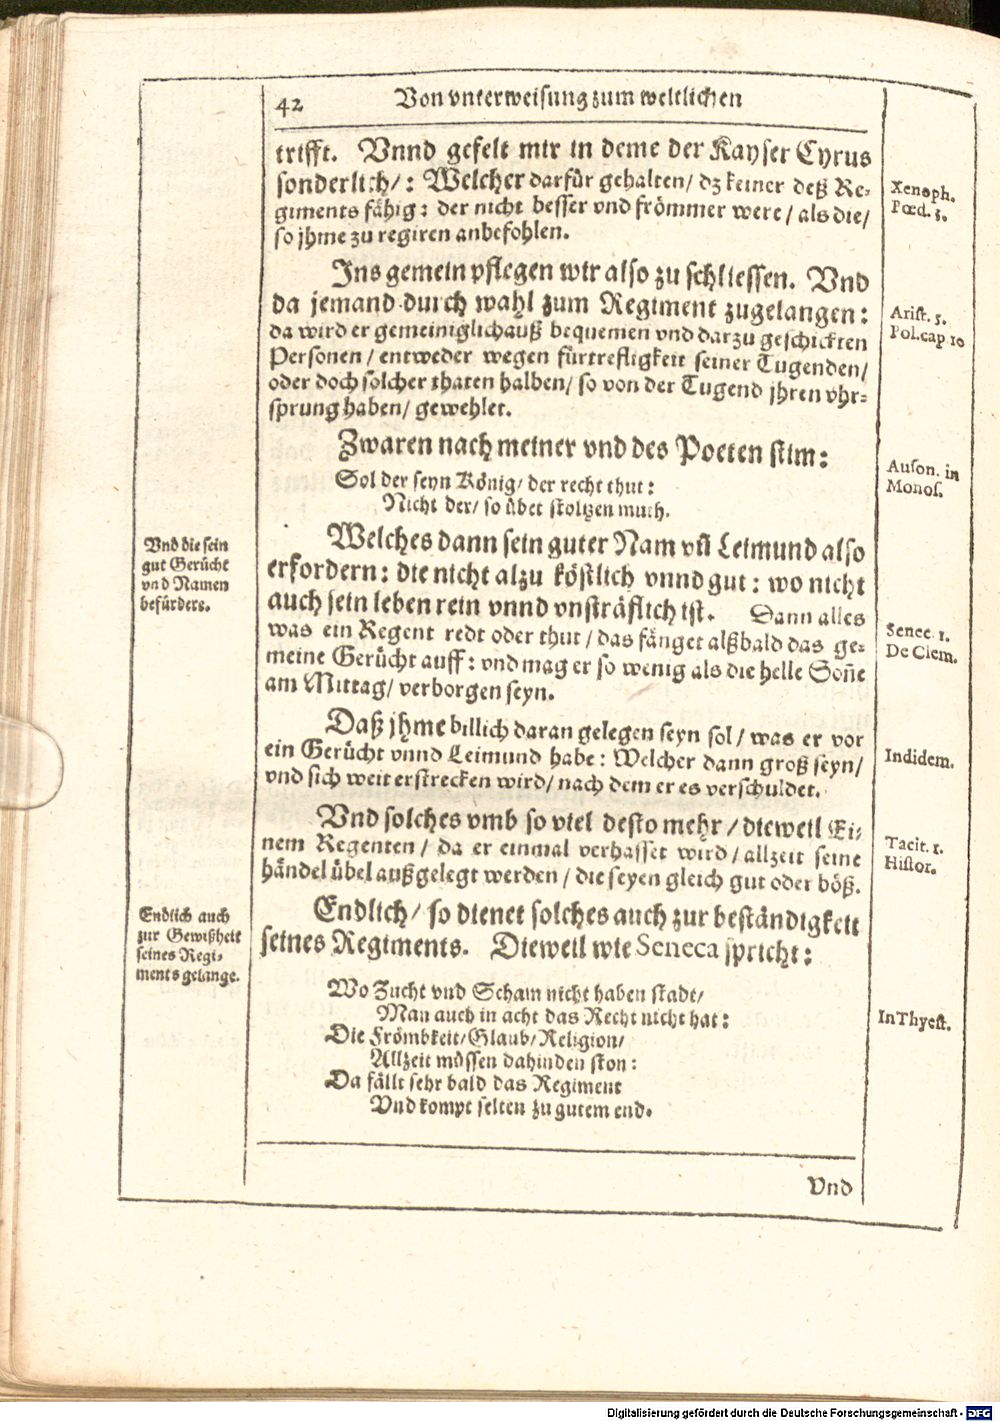 42 Von vnterweisung zum weltlichen
trifft. Vnnd gefelt mir in deme der Kayser Cyrus
sonderlich/: Welcher darfür gehalten/ dz keiner deß Re-
giments fähig: der nicht besser vnd frömmer were/ als die/
so jhme zu regiren anbefohlen.
Xenoph.
Pœd. 3.
Ins gemein pflegen wir also zu schliessen. Vnd
da jemand durch wahl zum Regiment zugelangen:
da wird er gemeiniglich auß bequemen vnd darzu geschickten
Personen/ entweder wegen fürtrefligkeit seiner Tugenden/
oder doch solcher thaten halben/ so von der Tugend jhren vhr-
sprung haben/ gewehlet.
Arist. 5.
Pol. cap. 10
Zwaren nach meiner vnd des Poeten stim:
Sol der seyn König/ der recht thut:
Nicht der/ so übet stoltzen muth.
Auson. in
Monos.
Welches dann sein guter Nam vñ Leimund also
erfordern: die nicht alzu köstlich vnnd gut: wo nicht
auch sein leben rein vnnd vnsträflich ist. Dann alles
was ein Regent redt oder thut/ das fänget alßbald das ge-
meine Gerücht auff: vnd mag er so wenig als die helle Soñe
am Mittag/ verborgen seyn.
Vnd die sein
gut Gerücht
vnd Namen
befürders.
Senec. 1.
De Clem.
Daß jhme billich daran gelegen seyn sol/ was er vor
ein Gerücht vnnd Leimund habe: Welcher dann groß seyn/
vnd sich weit erstrecken wird/ nach dem er es verschuldet.
Indidem.
Vnd solches vmb so viel desto mehr/ dieweil Ei-
nem Regenten/ da er einmal verhasset wird/ allzeit seine
händel übel außgelegt werden/ die seyen gleich gut oder böß.
Tacit. 1.
Histor.
Endlich/ so dienet solches auch zur beständigkeit
seines Regiments. Dieweil wie Seneca spricht:
Endlich auch
zur Gewißheit
seines Regi-
ments gelange.
Wo Zucht vnd Scham nicht haben stadt/
Man auch in acht das Recht nicht hat:
Die Frömbkeit/ Glaub/ Religion/
Allzeit müssen dahinden ston:
Da fällt sehr bald das Regiment
Vnd kompt selten zu gutem end.
In Thyest.
Vnd
Digitalisierung gefördert durch die Deutsche Forschungsgemeinschaft - DFG